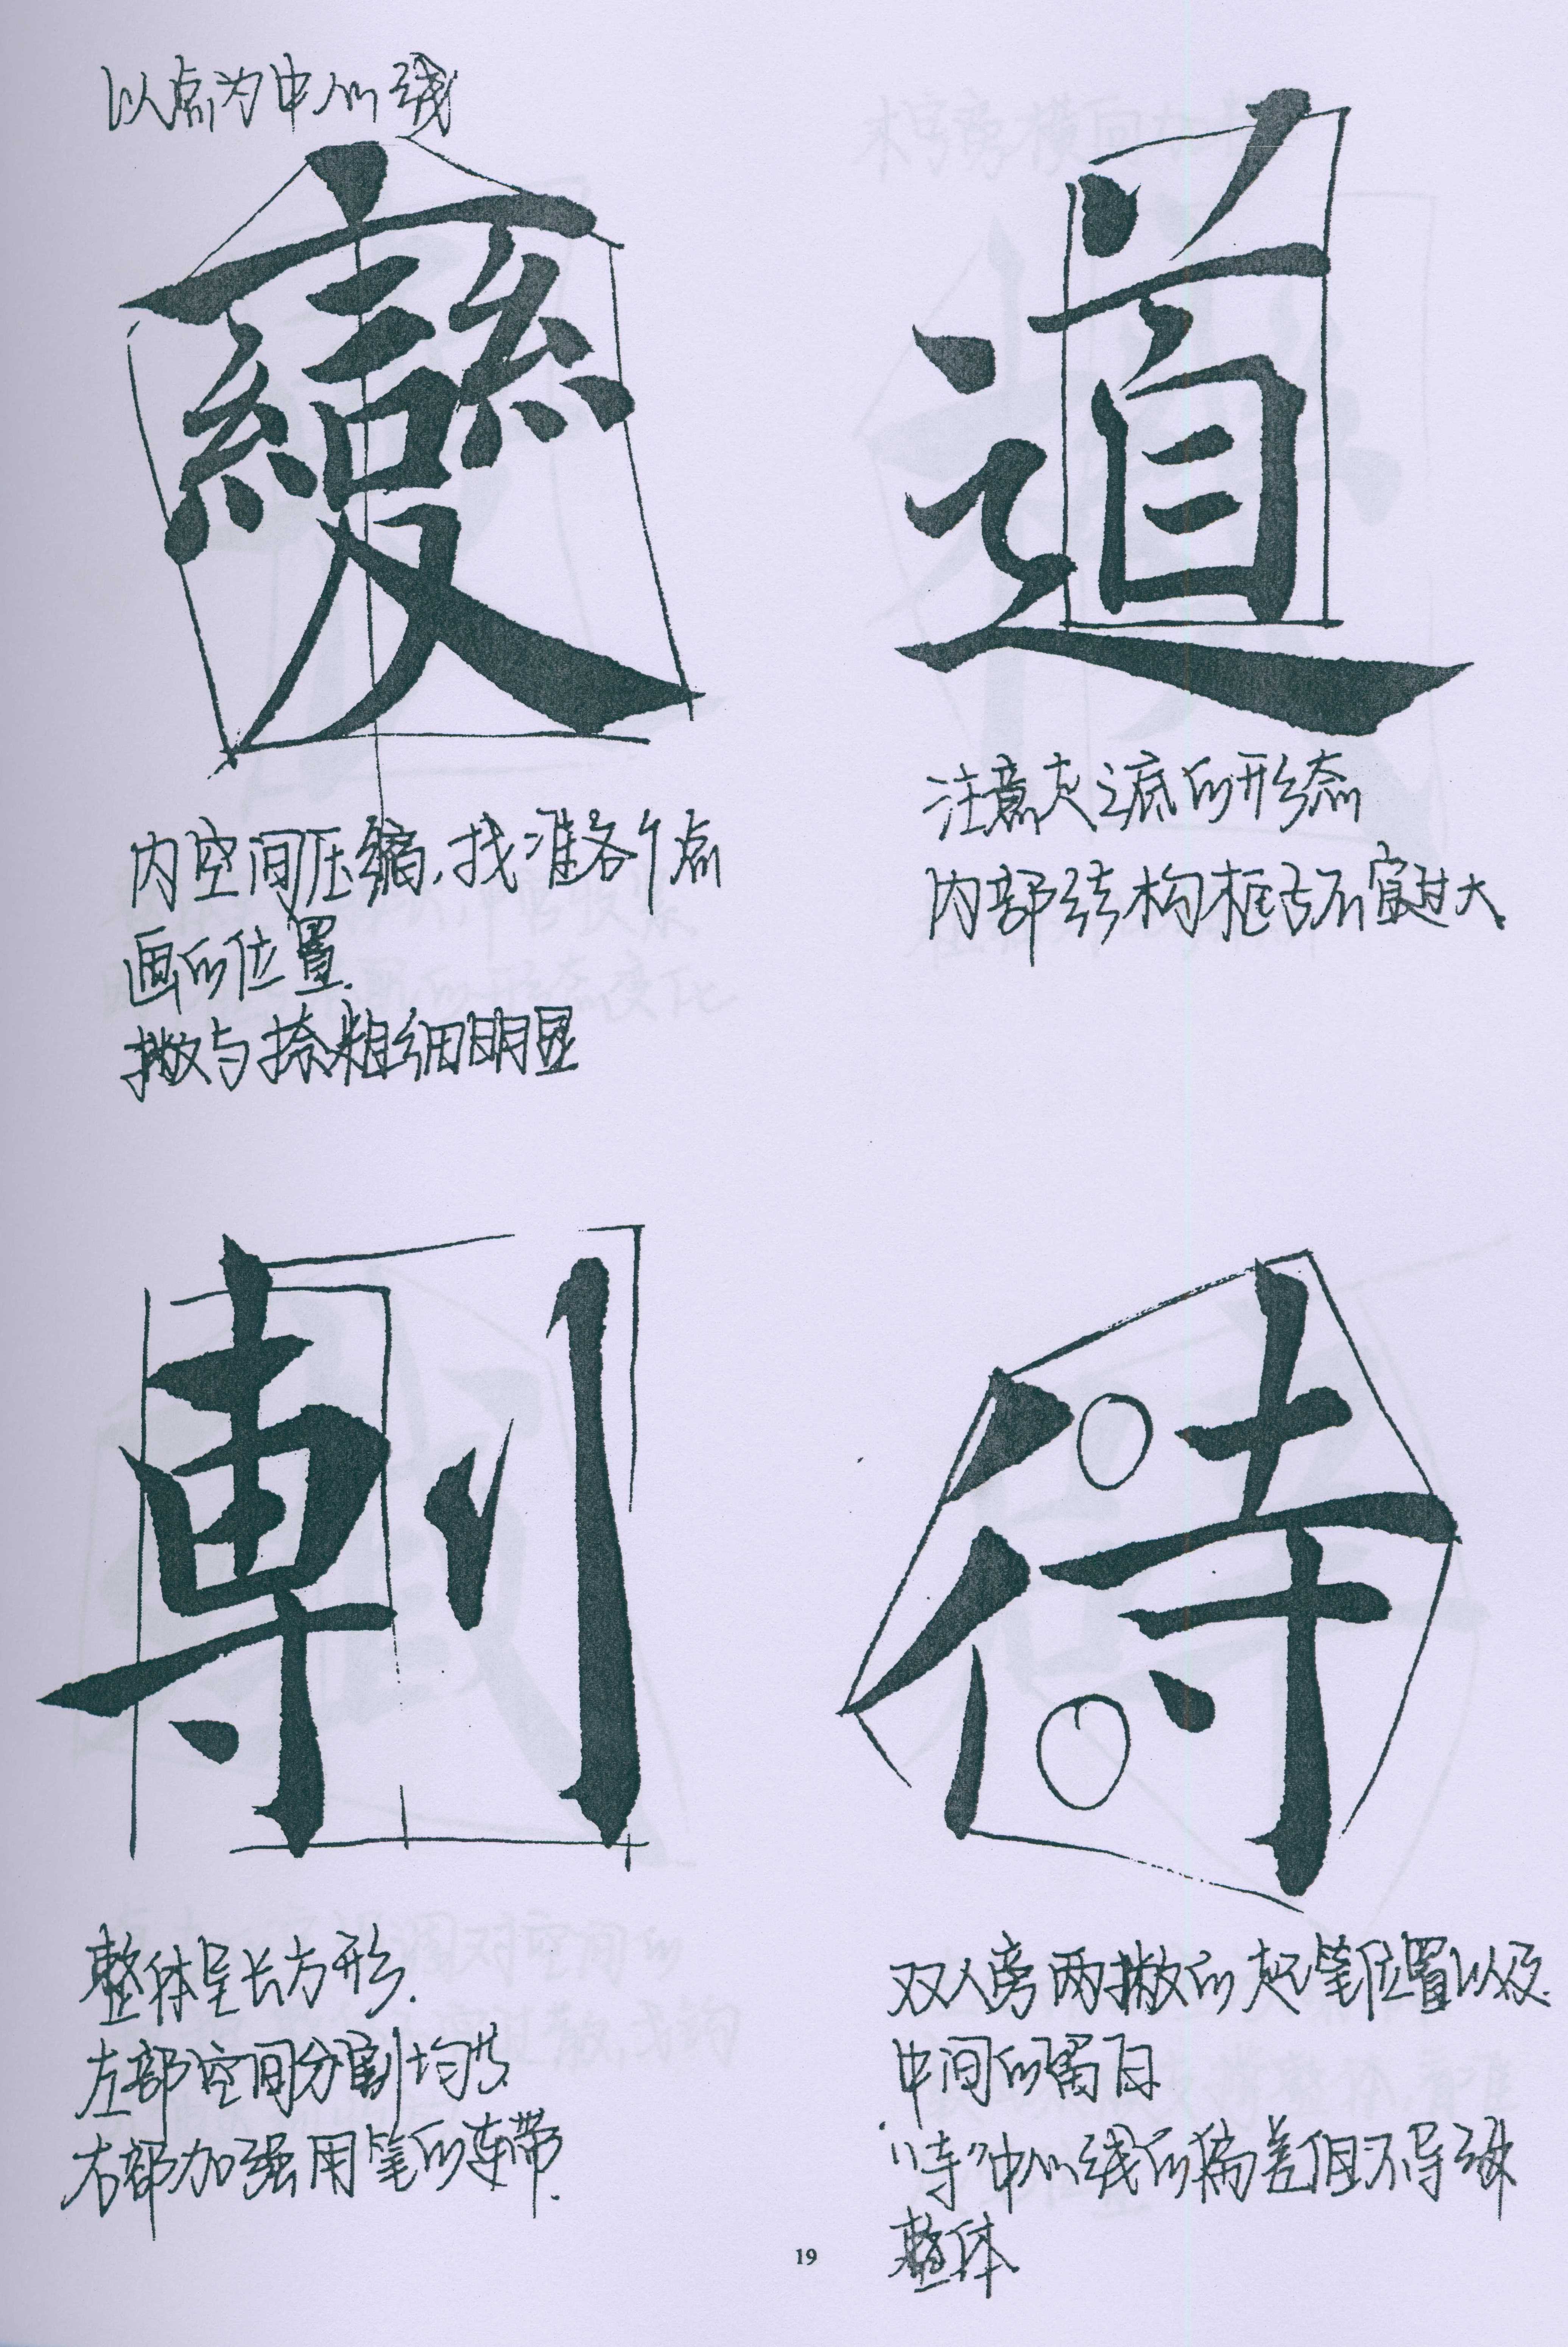 以点为中心线
變
内空间压缩，找准各个点
画的位置.
撇与捺粗细明显
道
注意走之底的形态
内部结构框与不宜过大
剸
整体呈长方形.
左部空间分割均匀.
右部加强用笔的连带.
待
双人旁两撇的起笔位置以及
中间的留白
“寺”中心线的偏差但不导
整体
19